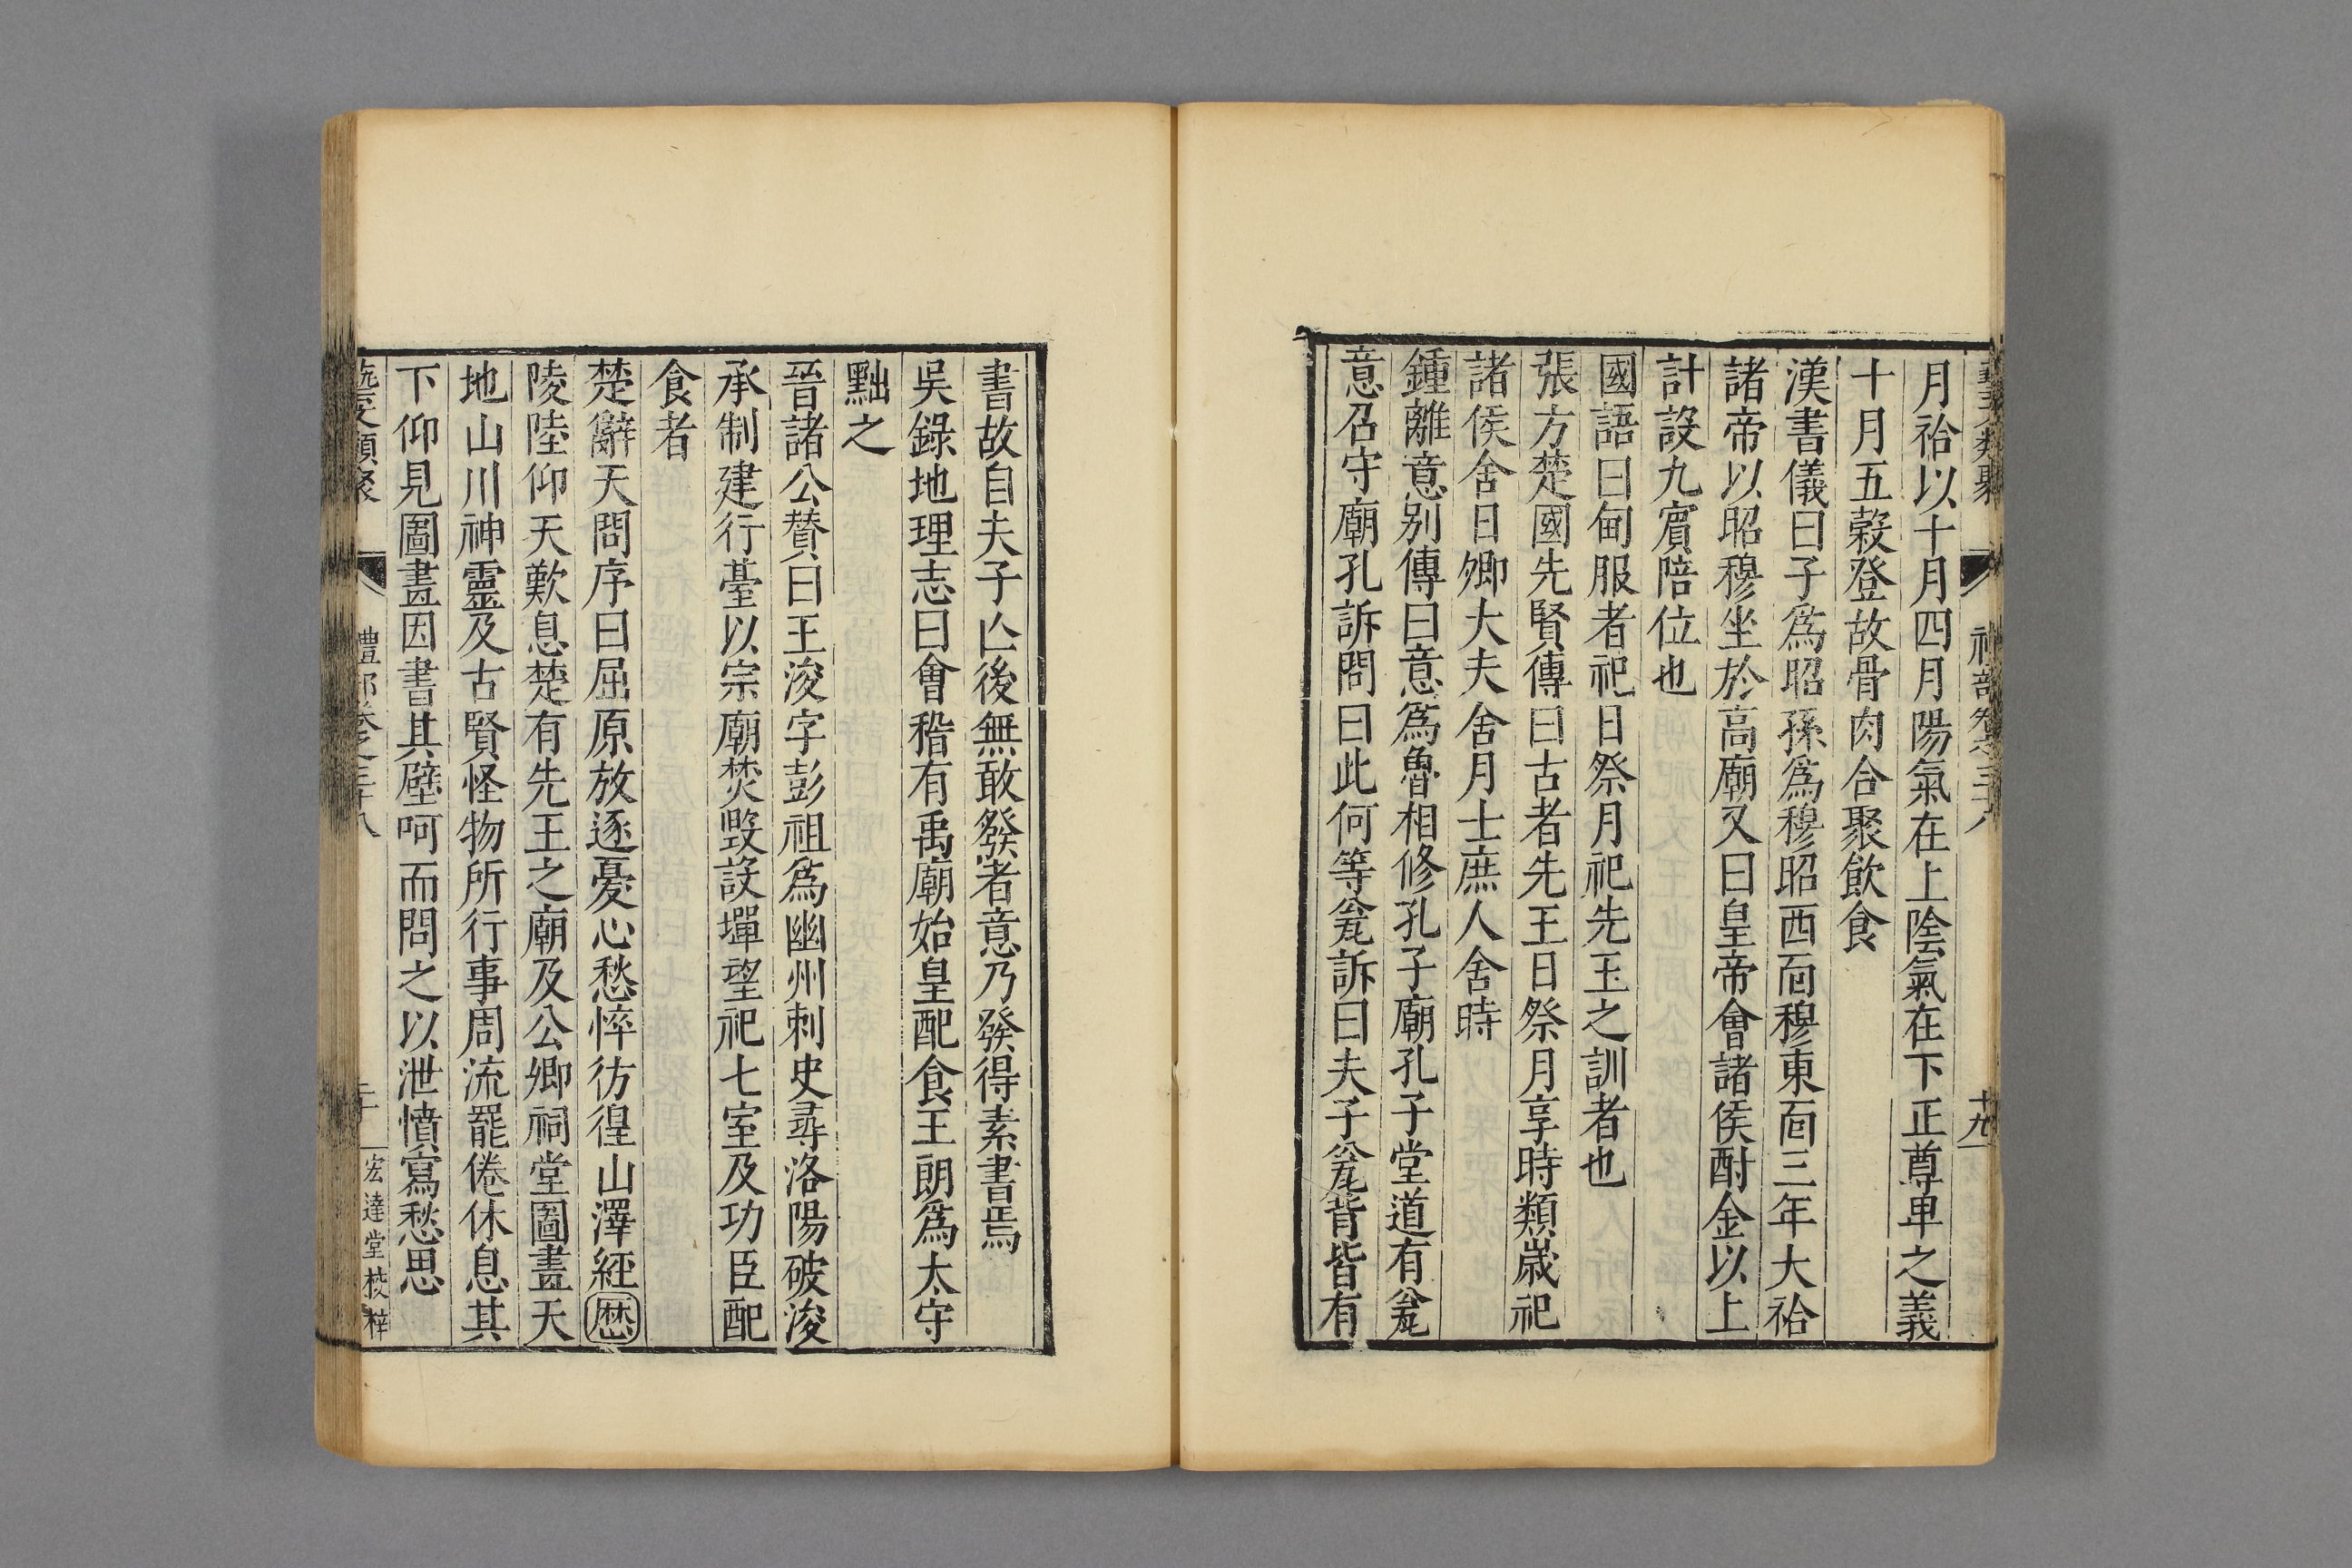 藝文類聚 禮部卷之三十八 十九
月祫以十月四月陽氣在上陰氣在下正尊卑之義
十月五穀登故骨肉合聚飲食
漢書儀曰子爲昭孫爲穆昭西靣穆東靣三年大祫
諸帝以昭穆坐於高廟又曰皇帝會諸侯酎金以上
計設九賔陪位也
國語曰甸服者祀日祭月祀先王之訓者也
張方楚國先賢傳曰古者先王日祭月享時類歲祀
諸侯舍日卿大夫舍月士庶人舍時
鍾離意别傳曰意爲魯相修孔子廟孔子堂道有瓮
意召守廟孔訴問曰此何等瓮訴曰夫子瓮背皆有
書故自夫子亾後無敢發者意乃發得素書焉
吳錄地理志曰會稽有禹廟始皇配食王朗爲太守
黜之
晉諸公賛曰王浚字彭祖爲幽州刺史尋洛陽破浚
承制建行臺以宗廟焚毀設墠望祀七室及功臣配
食者
楚辭天問序曰屈原放逐憂心愁悴彷徨山澤經歴
陵陸仰天歎息楚有先王之廟及公卿祠堂圖畫天
地山川神靈及古賢怪物所行事周流罷倦休息其
下仰見圖畫因書其壁呵而問之以泄憤寫愁思
藝文類聚 禮部卷之三十八 二十 宏達堂校梓